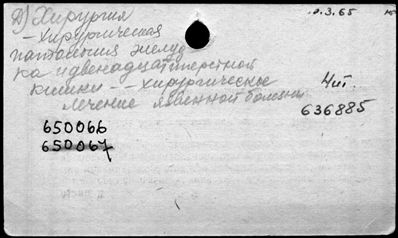 Д) Хирургия
– хирургическая
патология желуд
ка и двенадцатиперстной
кишки -- хирургическое
лечение язвенной болезни
.3.65
Чит.
636885
650066
650067